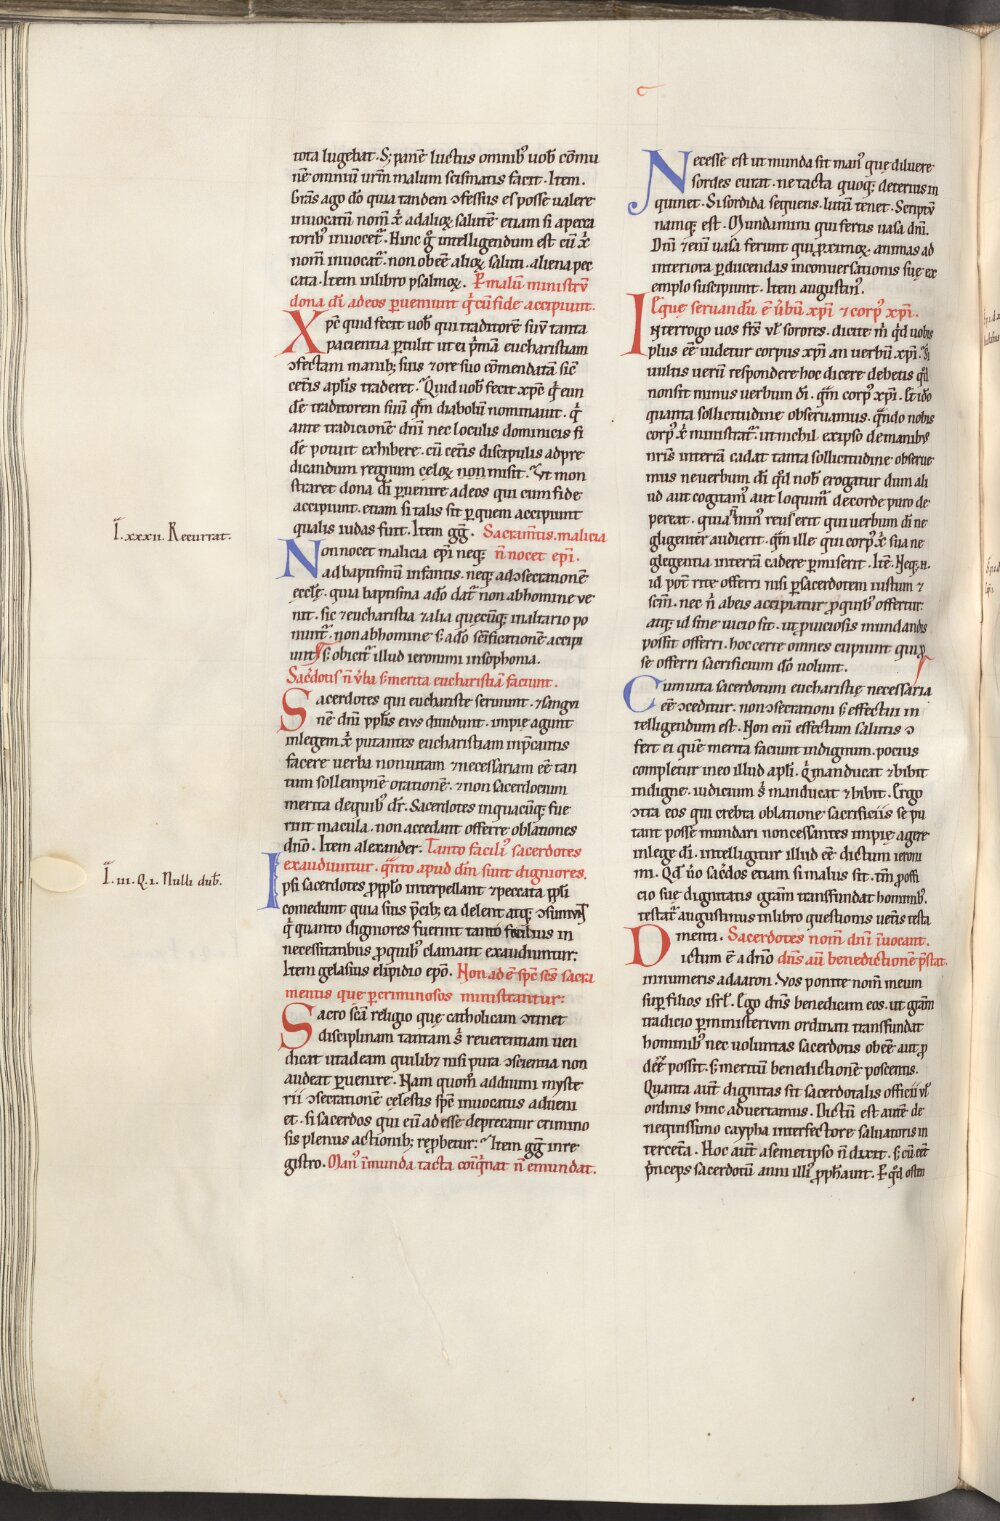 tota lugebat. S; pane luctus omnib; uob comu
ne omniu urm malum scismatis facit. Item.
Gras ago do quia tandem ɔfessus es posse ualere
inuocatu nom xi ad alioꝝ salute etiam si a pecca
torib; inuocet. Hinc g intelligendum est cu xi
nom inuocat. non obee alioꝝ saluti. aliena pec
cata. Item in libro psalmoꝝ. Per malu ministru
dona di ad eos perueniunt qi cu fide accipiunt.
Xpe quid fecit uob qui traditore suu tanta
patientia ptulit ut ei pma eucharistiam
ɔfectam manib; suis & ore suo comendata sic
cetis aplis traderet. Quid uob fecit xpe qi eun
de traditorem suu qm diabolu nominauit. qi
ante traditione dni nec loculis dominicis fi
de potuit exhibere. cu cetis discipulis ad pre
dicandum regnum celoꝝ non misit. Ut mon
straret dona di peruenire ad eos qui cum fide
accipiunt. etiam si talis sit p quem accipiunt
qualis iudas fuit. Item gg. Sacramtis. malicia
Non nocet malicia epi neq; n nocet epi.
ad baptismu infantis. neq; ad ɔsecratione
eccle. quia baptisma a do dat non ab homine ue
nit. sic & eucharistia & alia quecuq; in altario po
nunt. non ab homine s; a do scificatione accipi
unt. s; obicit illud ieronimi in sophonia.
Sacdotis n uba s; merita eucharistia faciunt.
Sacerdotes qui eucharistie seruiunt. & sangui
ne dni pplis eius diuidunt. impie agunt
in legem xi putantes eucharistiam inpcantis
facere uerba non uitam & necessariam ee tan
tum sollempne oratione. & non sacerdotum
merita de quib; dr. Sacerdotes in quacuq; fue
rint macula. non accedant offerre oblationes
dno. Item alexander. Tanto facili sacerdotes
exaudiuntur. qnto apud dm sunt digniores.
Ipsi sacerdotes p pplo interpellant & peccata ppli
comedunt quia suis pcib; ea delent atq; ɔsumunt
qi quanto digniores fuerint tanto facilius in
necessitatibus p quib; clamant exaudiuntur:
Item gelasius elipidio epo. Non adee spc scs sacra
mentis que p criminosos ministrantur:
Sacro sca religio que catholicam ɔtinet
disciplinam tantam s reuerentiam uen
dicat ut ad eam quilib; nisi pura ɔscientia non
audeat peruenire. Nam quom ad diuini myste
rii ɔsecratione celestis spc inuocatus adueni
et. si sacerdos qui eiu adesse deprecatur crimino
sis plenus actionib; repbetur: Item gg in re
gistro. Man inmunda tacta coinqnat n emundat.
Necesse est ut munda sit man que diluere
sordes curat. ne tacta quoq; deterius in
quinet. Si sordida sequens. lutu tenet. Scriptu
namq; est. Mundamini qui fertis uasa dni.
Dni & eni uasa ferunt qui pximoꝝ animas ad
interiora pducendas in conuersationis sue ex
emplo suscipiunt. Item augustin.
Eque seruandu e ubu xpi & corp xpi.
Interrogo uos frs ul sorores. dicite m qd uobis
plus ee uidetur corpus xpi an uerbu xpi. Si
uultis ueru respondere hoc dicere debetis qd
non sit minus uerbum di. qm corp xpi. Et ido
quanta sollicitudine obseruamus. qndo nobis
corp xi ministrat. ut nichil ex ipso de manib;
nris in terra cadat tanta sollicitudine obserue
mus ne uerbum di qd nob erogatur dum ali
ud aut cogitam aut loquim de corde puro de
pereat. quia n min reus erit qui uerbum di ne
gligenter audierit. qm ille qui corp xi sua ne
glegentia in terra cadere pmiserit. Ite. Neq; n.
id pot rite offerri nisi p sacerdotem iustum &
scm. nec n ab eis accipiatur p quib; offertur.
atq; id sine uicio sit. ut p uiciosis mundandis
possit offerri. hoc certe omnes cupiunt qui p
se offerri sacrificium do uolunt.
Cum uita sacerdotum eucharistie necessaria
ee ɔceditur. non ɔsecrationi s; effectui in
telligendum est. Non eni effectum salutis ɔ
fert ei que merita faciunt indignum. pocius
completur in eo illud apli. Qi manducat & bibit
indigne. iudicium si manducat & bibit. Ergo
ɔtra eos qui crebra oblatione sacrificiis se pu
tant posse mundari non cessantes impie agere
in lege di. intelligitur illud ee dictum ieroni
mi. Qd uo sacdos etiam si malus sit. tm p offi
cio sue dignitatis gram transfundat hominib;
testat augustinus in libro questionis ueteris testa
menti. Sacerdotes nom dni inuocant.
Dictum e a dno dns au benedictione pstat.
in numeris ad aaron. Vos ponite nom meum
sup filios isrl. Ego dns benedicam eos. ut gram
tradicio p ministerium ordinati transfundat
hominib; nec uoluntas sacerdotis obee aut p
dee possit. s; meritu benedictione poscentis.
Quanta aut dignitas sit sacerdotalis officii ul
ordinis hinc aduertamus. Dictu est aute de
nequissimo caypha interfectore saluatoris in
tercetera. Hoc aut a semetipso n dixit. s; cu eet
pnceps sacerdotu anni illi pphauit. P qd osten
I. xxxii. Recurrat.
I. iii. Q. i. Nulli dub.